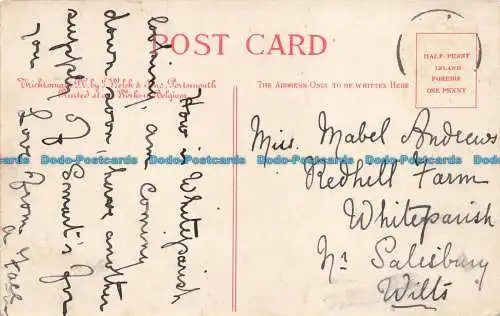 POST CARD
HALF-PENNY
INLAND
FOREIGN
ONE PENNY
Trichromatic by J. Welch & Sons, Portsmouth
Printed at our Works in Belgium
THE ADDRESS ONLY TO BE WRITTEN HERE
How is Whiteparish
looking, am coming
down soon, have another
supply of Smart's for
you Love from
Miss. Mabel Andrews
Redhill Farm
Whiteparish
Nr Salisbury
Wilts
Dodo-Postcards Dodo-Postcards Dodo-Postcards Dodo-Postcards Dodo-Postcards Dodo-Postcards